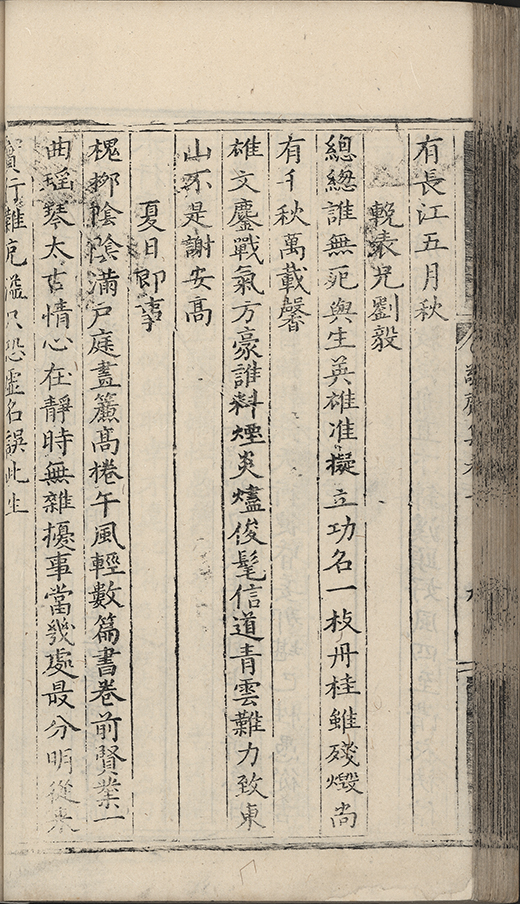 有長江五月秋
輓表兄劉毅
總總誰無死與生英雄准擬立功名一枝丹桂雖殘燬尚
有千秋萬載馨
雄文鏖戰氣方豪誰料煙炎爐俊髦信道青雲難力致東
山不是謝安高
夏日即事
槐柳陰陰滿戶庭晝簾高捲午風輕數篇書卷前賢業一
曲瑤琴太古情心在靜時無雜擾事當幾處最分明從來
實行難克濫只恐虛名誤此生